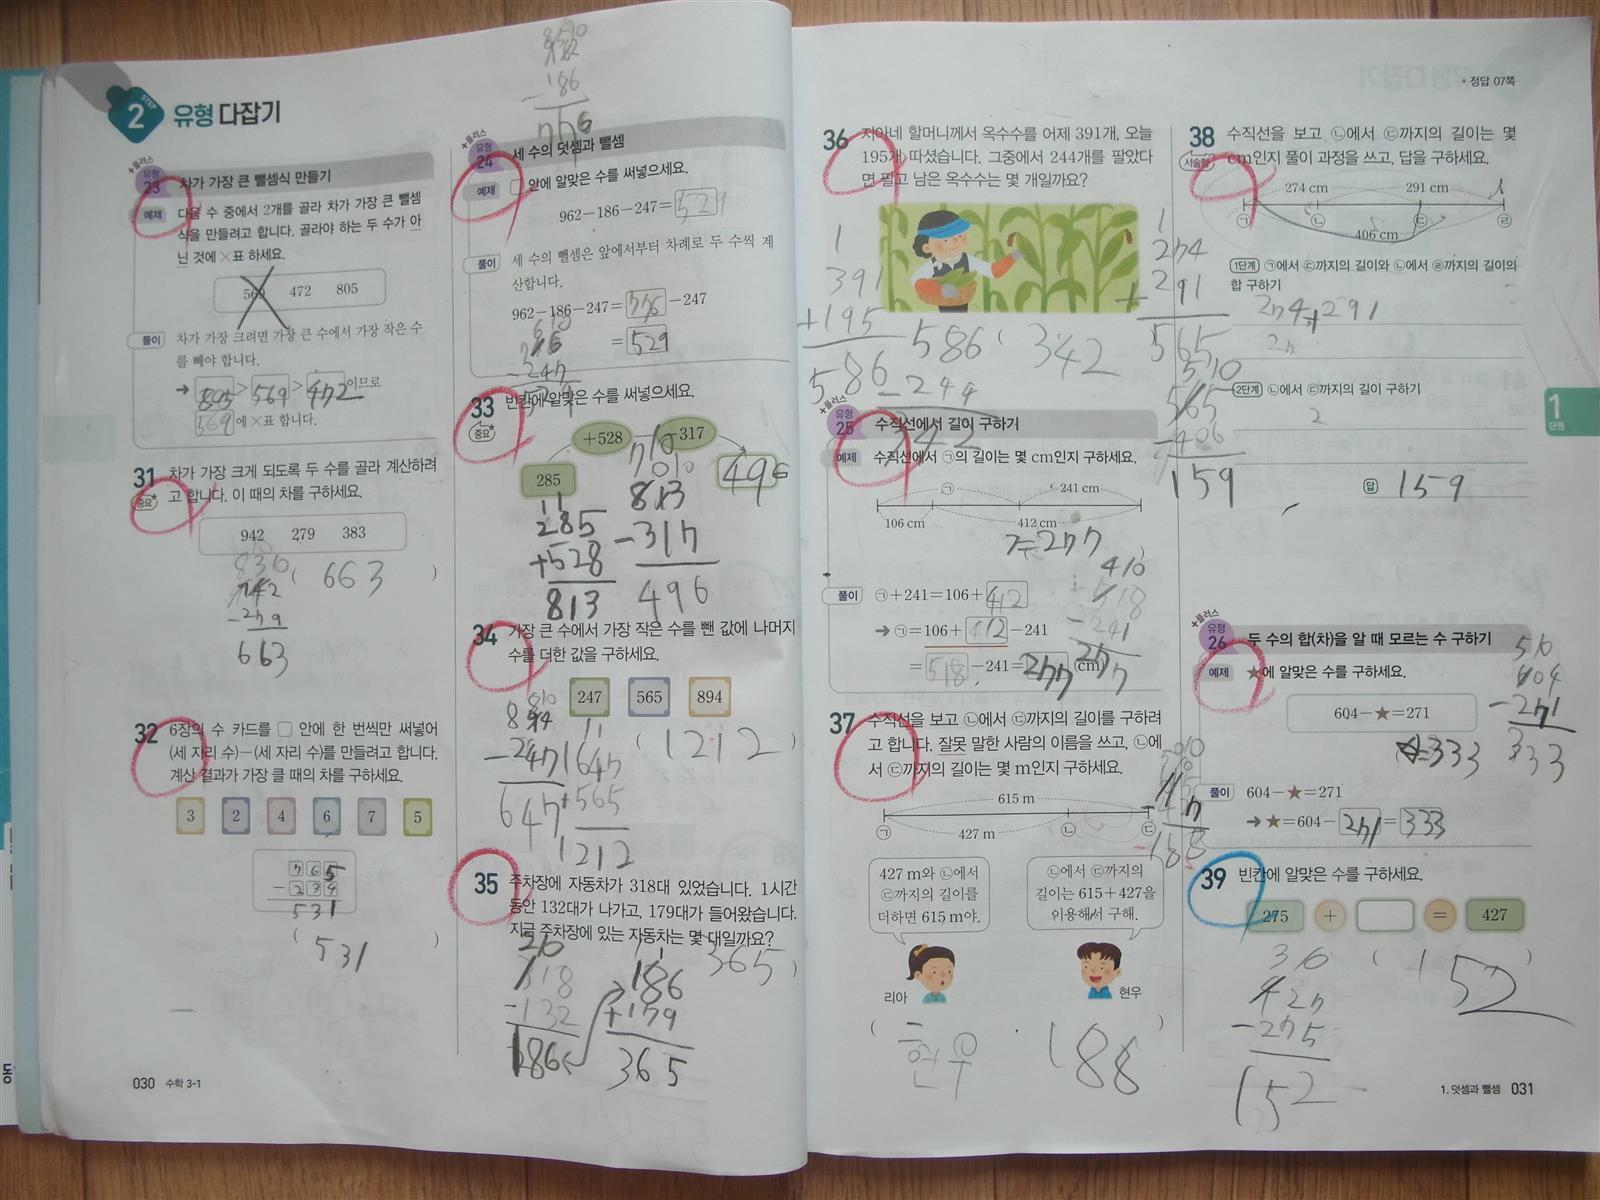 STEP
2 유형 다잡기
+플러스
유형
23 차가 가장 큰 뺄셈식 만들기
예제 다음 수 중에서 2개를 골라 차가 가장 큰 뺄셈
식을 만들려고 합니다. 골라야 하는 두 수가 아
닌 것에 ×표 하세요.
569 472 805
풀이 차가 가장 크려면 가장 큰 수에서 가장 작은 수
를 빼야 합니다.
→ 805 > 569 > 472 이므로
569 에 ×표 합니다.
31 차가 가장 크게 되도록 두 수를 골라 계산하려
중요 고 합니다. 이 때의 차를 구하세요.
942 279 383
( 663 )
-279
663
32 6장의 수 카드를 □ 안에 한 번씩만 써넣어
(세 자리 수)-(세 자리 수)를 만들려고 합니다.
계산 결과가 가장 클 때의 차를 구하세요.
3 2 4 6 7 5
765
-234
531
( 531 )
030 수학 3-1
-186
776
+플러스
유형
24 세 수의 덧셈과 뺄셈
예제 □ 안에 알맞은 수를 써넣으세요.
962-186-247= 529
풀이 세 수의 뺄셈은 앞에서부터 차례로 두 수씩 계
산합니다.
962-186-247= 776 -247
= 529
-247
33 빈칸에 알맞은 수를 써넣으세요.
중요
+528 -317
285 496
11
285
+528
813
710
813
-317
496
34 가장 큰 수에서 가장 작은 수를 뺀 값에 나머지
수를 더한 값을 구하세요.
247 565 894
( 1212 )
894
-247
647
11
647
+565
1212
35 주차장에 자동차가 318대 있었습니다. 1시간
동안 132대가 나가고, 179대가 들어왔습니다.
지금 주차장에 있는 자동차는 몇 대일까요?
365 )
318
-132
186
11
186
+179
365
• 정답 07쪽
36 지아네 할머니께서 옥수수를 어제 391개, 오늘
195개 따셨습니다. 그중에서 244개를 팔았다
면 팔고 남은 옥수수는 몇 개일까요?
1
391
+195
586
586 ( 342
-244
342
+플러스
유형
25 수직선에서 길이 구하기
예제 수직선에서 ㉠의 길이는 몇 cm인지 구하세요.
㉠ 241 cm
106 cm 412 cm
=277
풀이 ㉠+241=106+ 412
→ ㉠=106+ 412 -241
= 518 -241= 277 (cm)
410
518
-241
277
37 수직선을 보고 ㉡에서 ㉢까지의 길이를 구하려
고 합니다. 잘못 말한 사람의 이름을 쓰고, ㉡에
서 ㉢까지의 길이는 몇 m인지 구하세요.
615 m
㉠ 427 m ㉡ ㉢
188
427 m와 ㉡에서
㉢까지의 길이를
더하면 615 m야.
리아
㉡에서 ㉢까지의
길이는 615+427을
이용해서 구해.
현우
( 현우 188 )
38 수직선을 보고 ㉡에서 ㉢까지의 길이는 몇
서술형 cm인지 풀이 과정을 쓰고, 답을 구하세요.
274 cm 291 cm
㉠ ㉡ ㉢ ㉣
406 cm
1
274
+291
565
510
565
-406
159
1단계 ㉠에서 ㉢까지의 길이와 ㉡에서 ㉣까지의 길이의
합 구하기
274+291
2단계 ㉡에서 ㉢까지의 길이 구하기
2
답 159
1
단원
+플러스
유형
26 두 수의 합(차)을 알 때 모르는 수 구하기
예제 ★에 알맞은 수를 구하세요.
604-★=271
★=333
510
604
-271
333
풀이 604-★=271
→★=604- 271 = 333
39 빈칸에 알맞은 수를 구하세요.
275 + □ = 427
( 152
310
427
-275
152
1. 덧셈과 뺄셈 031